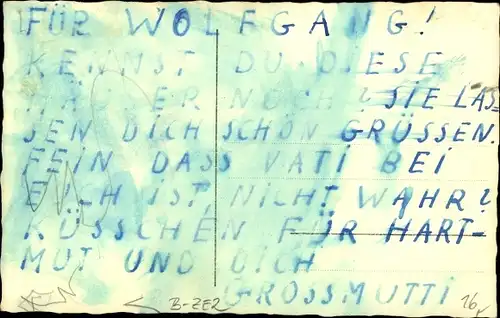 FÜR WOLFGANG!
KENNST DU DIESE
HÄUSER NOCH? SIE LAS-
SEN DICH SCHÖN GRÜSSEN.
FEIN DASS VATI BEI
EUCH IST, NICHT WAHR?
KÜSSCHEN FÜR HART-
MUT UND DICH
GROSSMUTTI
B-ZE2
16,